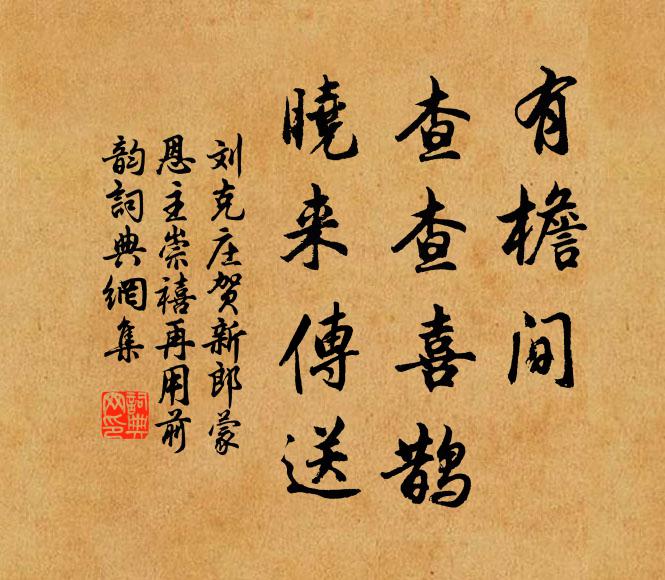 有檐间
查查喜鹊
曉来傳送
刘克庄贺新郎蒙
恩主崇禧再用前
韵詞典網集
詞典
网印